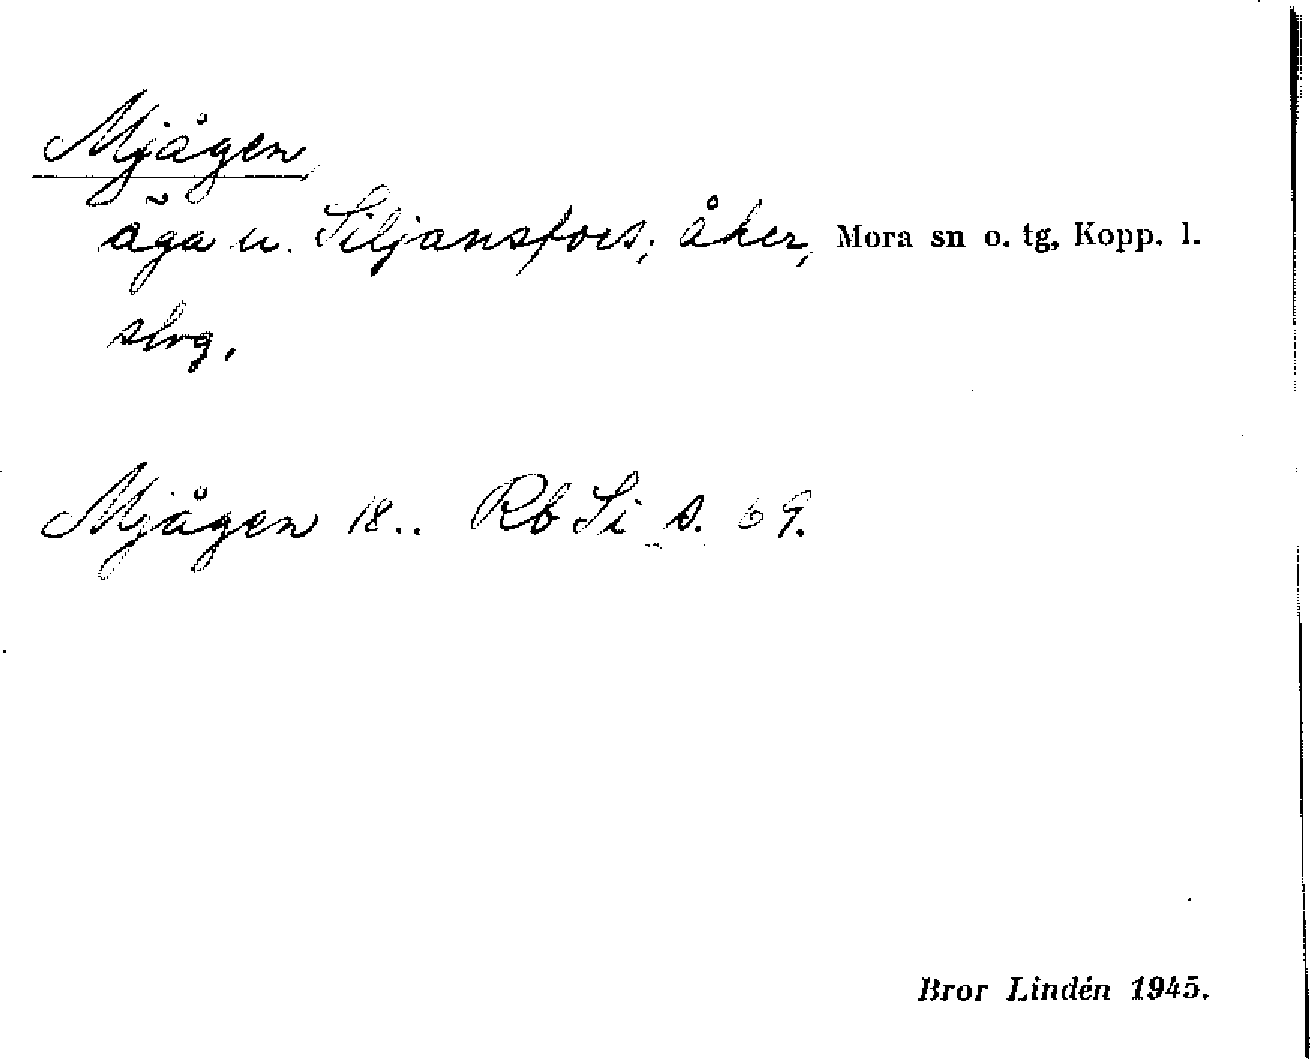 Mjågen,
äga u. Siljansfors; åker, Mora sn o. tg, Kopp. l.
slvg.
Mjågen 18.. Rb Si s. 69.
Bror Lindén 1945.